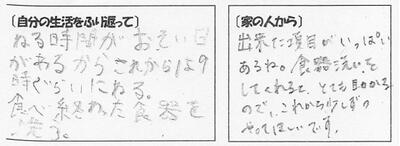 〔自分の生活をふり返って〕
ねる時間がおそい日
があるからこれからは9
時ぐらいにねる。
食べ終わった食器を
洗る。
〔家の人から〕
出来た項目がいっぱい
あるね。食器洗いを
してくれると、とても助かる
ので、これから少しずつ
やってほしいです。